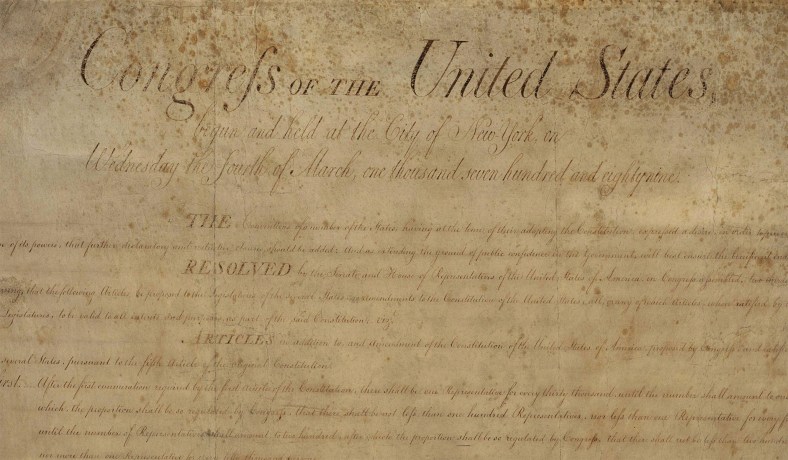 Congress OF THE United States,
begun and held at the City of New-York, on
Wednesday the fourth of March, one thousand seven hundred and eighty nine.
THE Conventions of a number of the States, having at the time of their adopting the Constitution, expressed a desire, in order to
of its powers, that further declaratory and restrictive clauses should be added: And as extending the ground of public confidence in the Government, will best ensure the beneficent
RESOLVED by the Senate and House of Representatives of the United States of America, in Congress assembled, two
that the following Articles be proposed to the Legislatures of the several States, as amendments to the Constitution of the United States, all, or any of which Articles, when ratified by
Legislatures, to be valid to all intents and purposes, as part of the said Constitution; viz.
ARTICLES in addition to, and Amendment of the Constitution of the United States of America, proposed by Congress, and
several States, pursuant to the fifth Article of the original Constitution.
After the first enumeration required by the first Article of the Constitution, there shall be one Representative for every thirty thousand, until the number shall amount to
which, the proportion shall be so regulated by Congress, that there shall be not less than one hundred Representatives, nor less than one Representative for every
until the number of Representatives shall amount to two hundred, after which the proportion shall be so regulated by Congress, that there shall not be less than two
nor more than one Representative for every